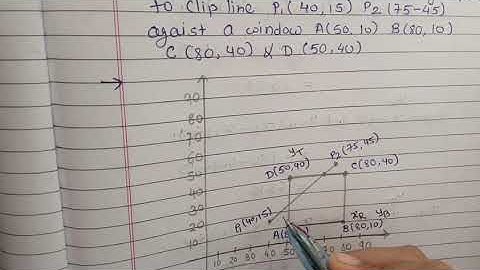 to clip line P₁(40,15) P₂(75-45)
agaist a window A(50,10) B(80,10)
C(80,40) & D(50,40)
90
80
70
60
50
40
30
20
10
P₂(75,45)
yT
D(50,40)
C(80,40)
P₁(40,15)
xR yB
A(
B(80,10)
10 20 30 40 50 80 90